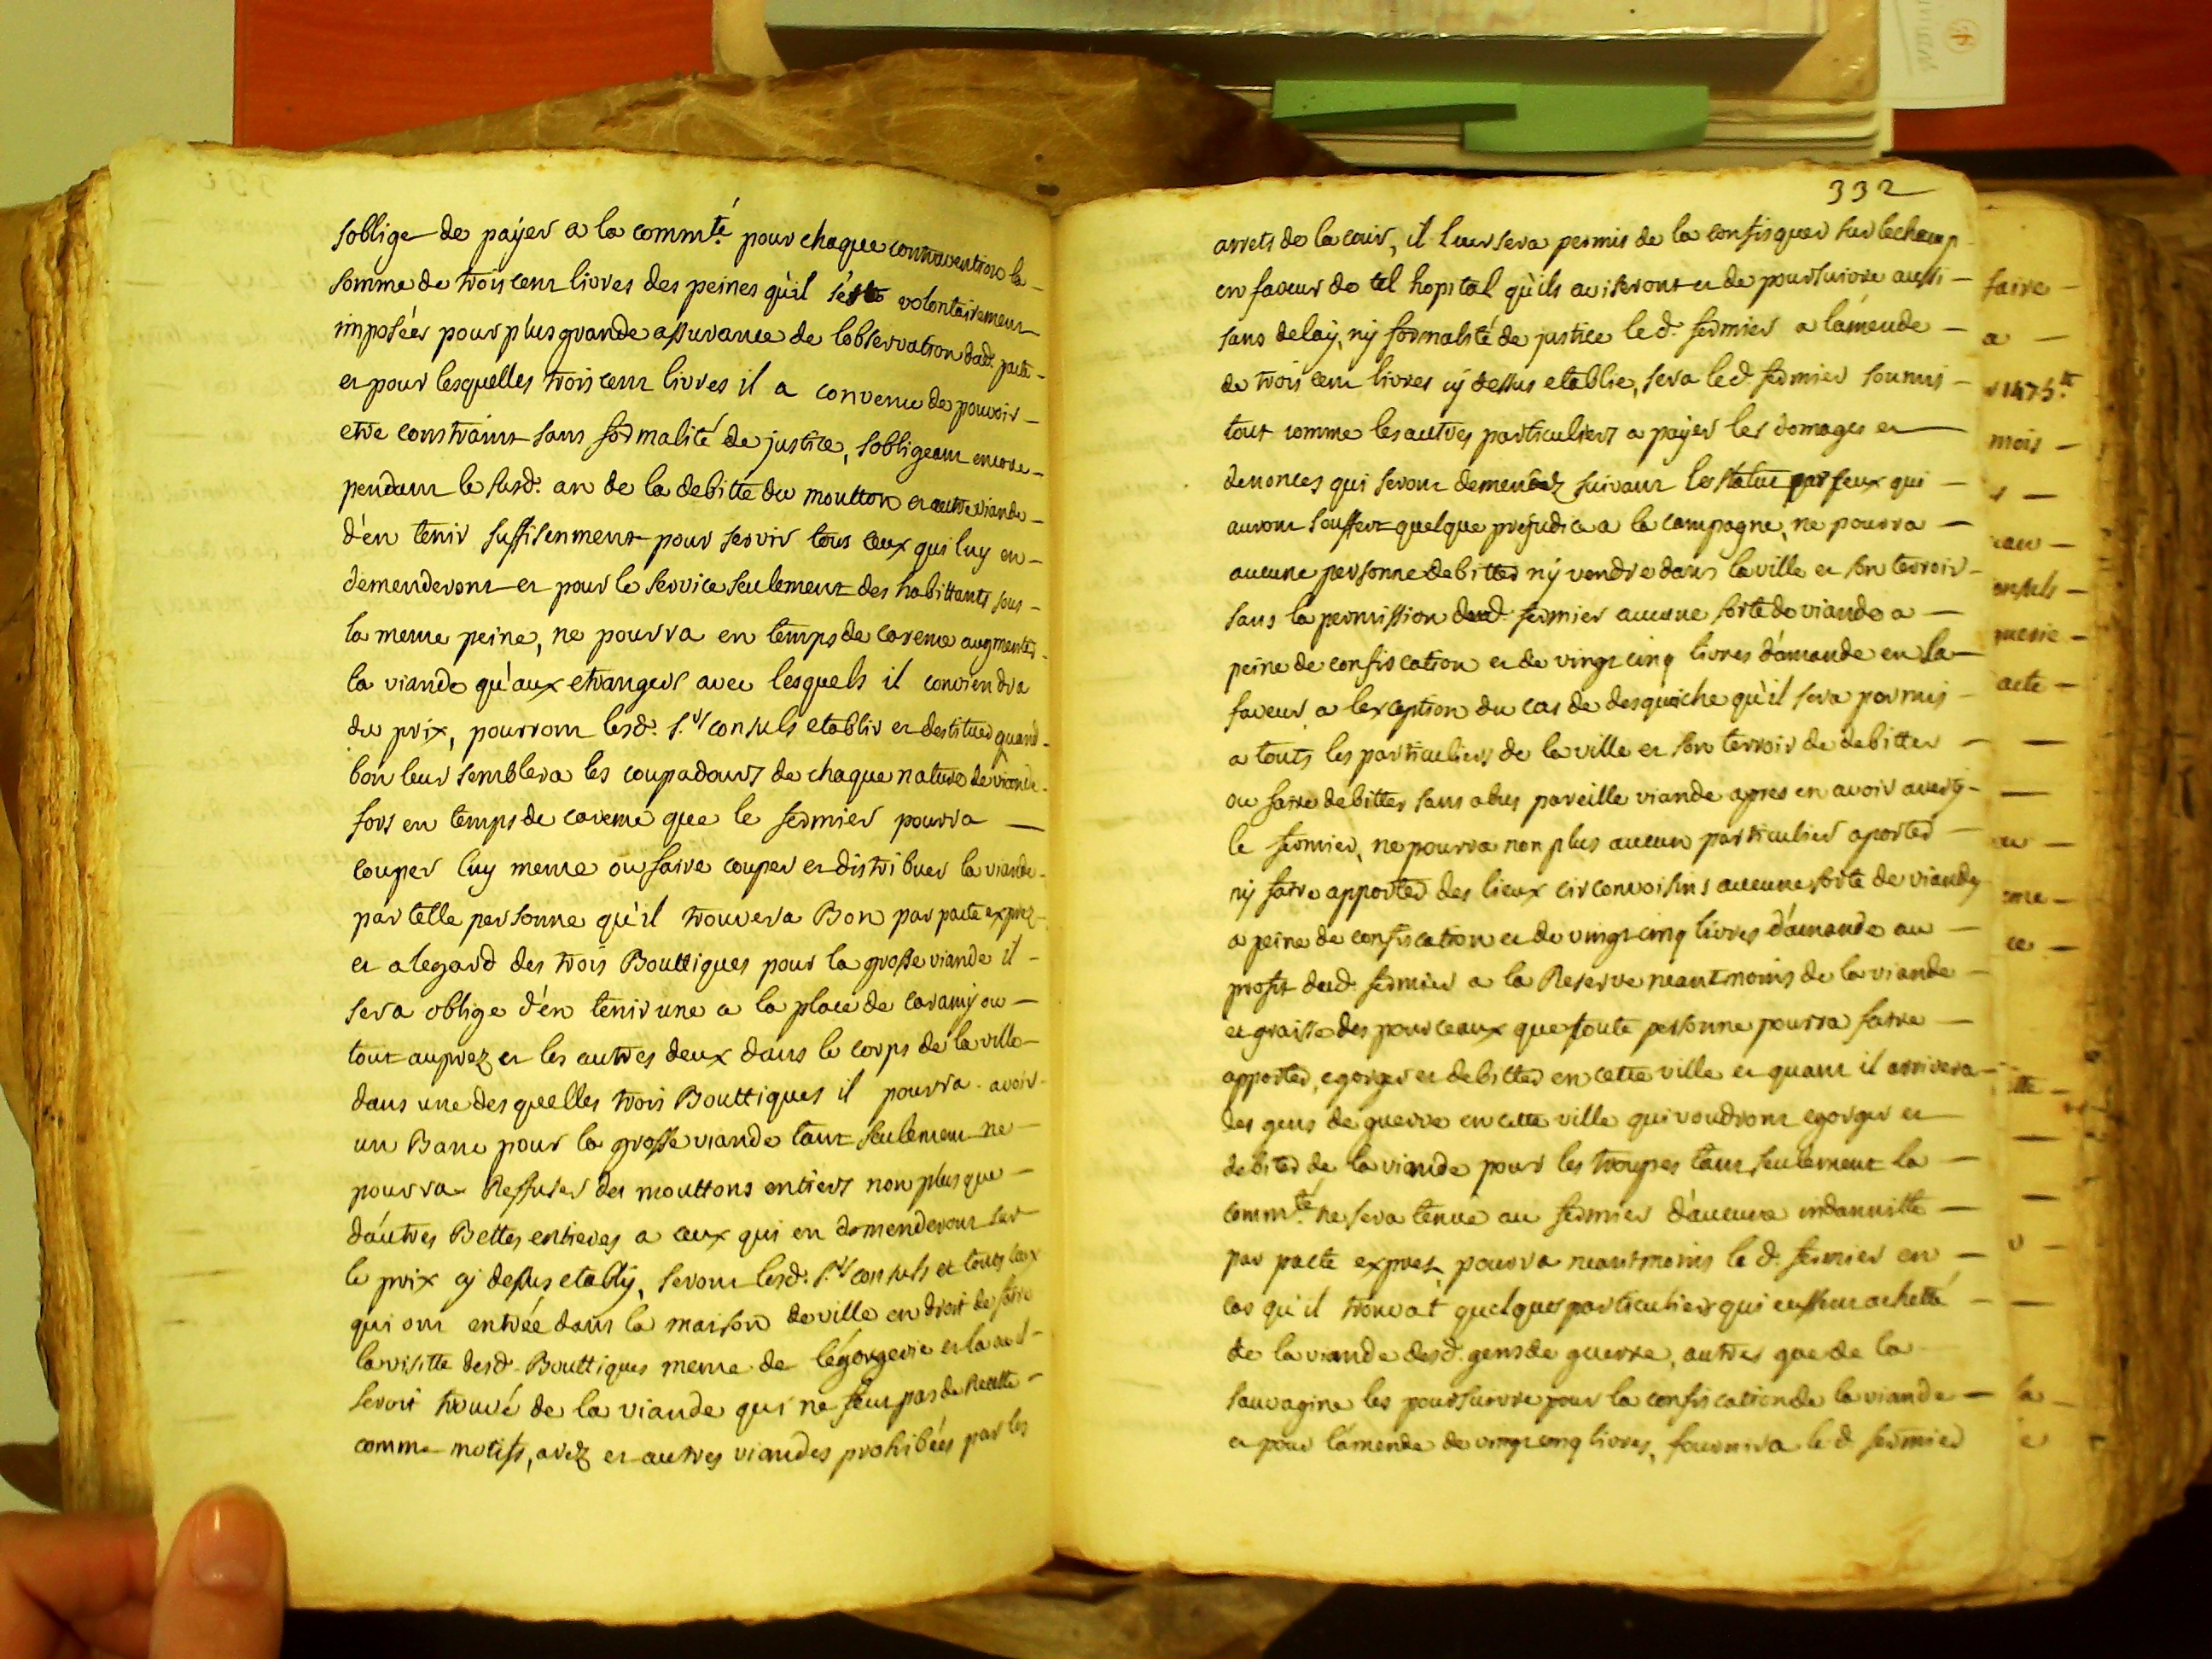 soblige de payer a la commté. pour chaque contravention la
somme de trois cens livres des peines qu'il s'est volontairement
imposées pour plus grande assurance de lobservation dud. pacte
et pour lesquelles trois cens livres il a convenu de pouvoir
etre constraint sans formalité de justice, sobligeant encore
pendant le susd. an de la debitte du moutton et autre viande
d'en tenir suffisenment pour servir tous ceux qui luy en
demenderont et pour le service seulement des habittants sous
la meme peine, ne pourra en temps de careme augmenter
la viande qu'aux etrangers avec lesquels il conviendra
du prix, pourront lesd. srs consuls etablir et destituer quand
bon leur semblera les coupadours de chaque nature de viande
fors en temps de careme que le fermier pourra
couper luy meme ou faire couper et distribuer la viande
par telle personne qu'il trouvera Bon par pacte exprez
et a legard des trois Bouttiques pour la grosse viande il
sera oblige d'en tenir une a la place de caramy ou
tout auprez et les autres deux dans le corps de la ville
dans une desquelles trois Bouttiques il pourra avoir
un Banc pour la grosse viande tant seulement ne
pourra Reffuser des mouttons entiers non plus que
d'autres Bettes entieres a ceux qui en demenderont sur
le prix cy dessus etably, seront lesd. srs consuls et tous ceux
qui ont entrée dans la maison de ville en droit de faire
la visitte desd. Bouttiques meme de l'égorgerie et la ou
seroit trouvé de la viande qui ne feut pas de Recette
comme motifs, avez et autres viandes prohibées par les
332
arrets de la cour, il leur sera permis de la confisquer sur le champ
en faveur de tel hopital qu'ils aviseront et de poursuivre aussi
sans delay, ny formalité de justice le d. fermier a l'amende
de trois cens livres cy dessus etablie, sera le d. fermier soumis
tout comme les autres particuliers a payer les domages et
denonces qui seront demendez suivant les statut par ceux qui
auront souffert quelque prejudice a la campagne, ne pourra
aucune personne debitter ny vendre dans la ville et son terroir
sans la permission dud. fermier aucune sorte de viande a
peine de confiscation et de vingt cinq livres d'amande en sa
faveur a lexception du cas de desquiche qu'il sera permis
a touts les particuliers de la ville et son terroir de debitter
ou faire debitter sans abus pareille viande apres en avoir averty
le fermier, ne pourra non plus aucun particulier aporter
ny faire apporter des lieux circonvoisins aucune sorte de viande
a peine de confiscation et de vingt cinq livres d'amande au
profit dud. fermier a la Reserve neantmoins de la viande
et graisse des pourceaux que toute personne pourra faire
apporter, egorger et debitter en cette ville et quant il arrivera
des gens de guerre en cette ville qui voudront egorger et
debiter de la viande pour les troupes tant seulement la
commté. ne sera tenue au fermier d'aucune indannitté
par pacte exprez, pourra neantmoins le d. fermier en
cas qu'il trouvat quelques particuliers qui eussent achetté
de la viande desd. gens de guerre, autres que de la
sauvagine les poursuivre pour la confiscation de la viande
et pour l'amende de vingt cinq livres, fournira le d. fermier
faire
a
1475 tt
mois
onsuls
acte
ou
ce
la